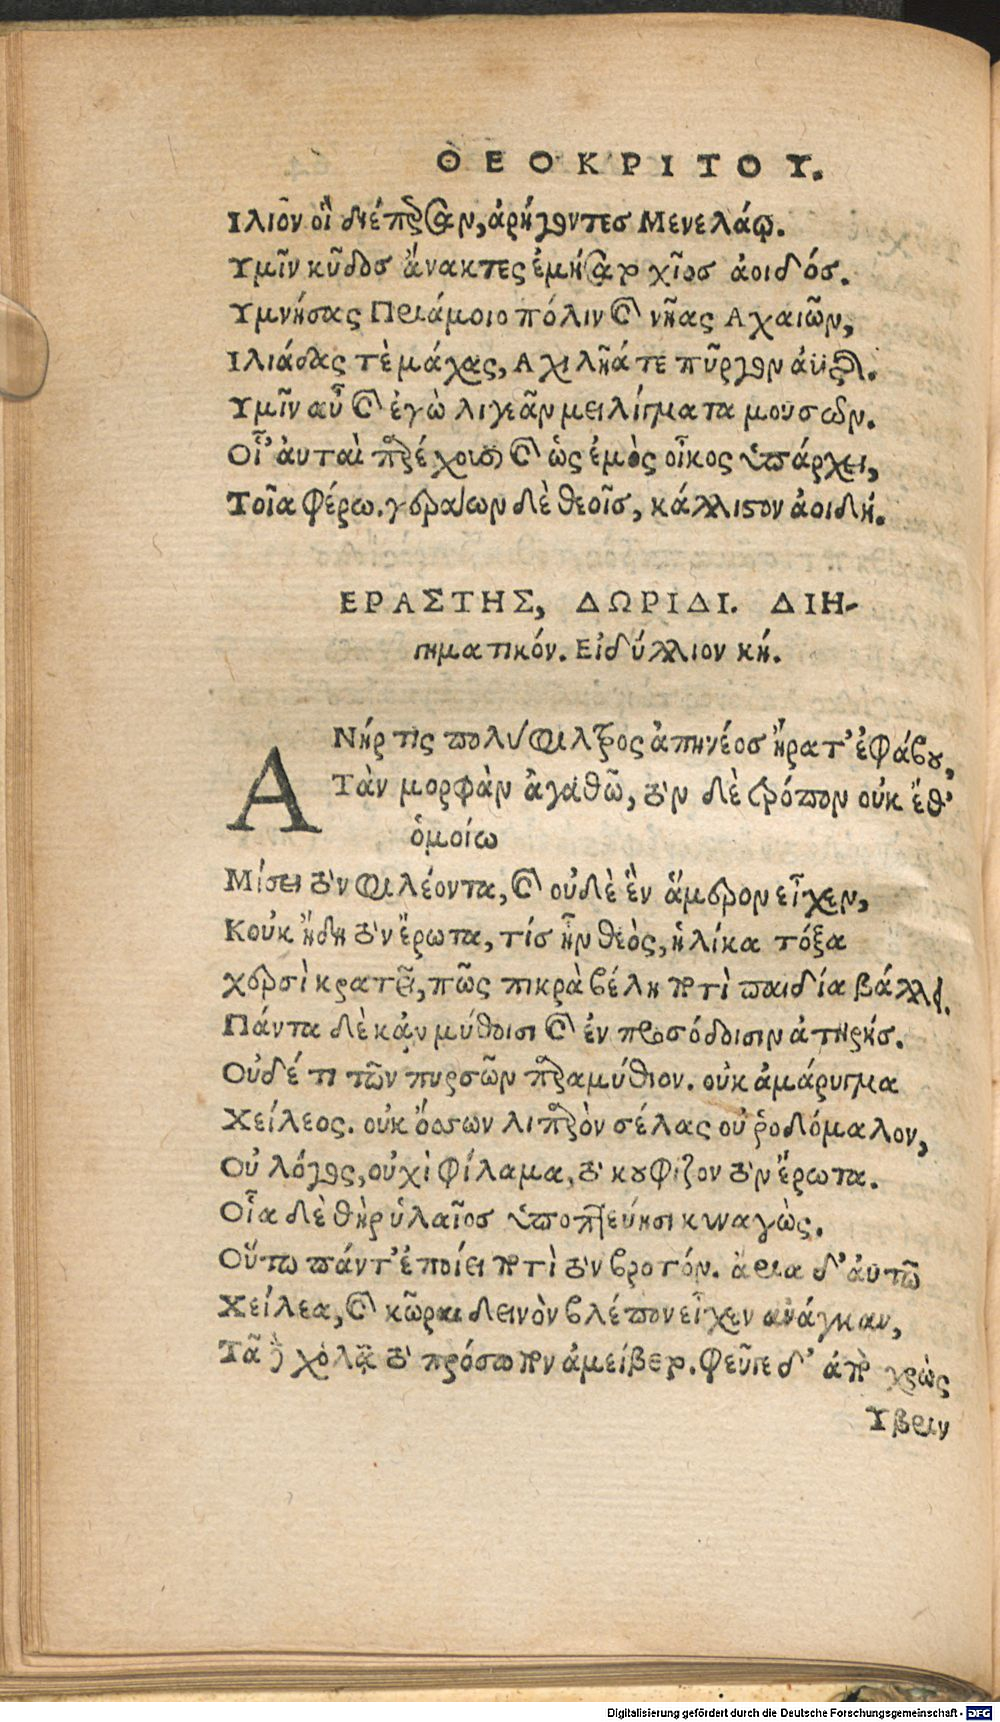 ΘΕΟΚΡΙΤΟΥ.
Ιλιον οἳ διέπερσαν, ἀρήγοντες Μενελάῳ.
Υμῖν κῦδος ἄνακτες ἐμήσατο χῖος ἀοιδός.
Υμνήσας Πριάμοιο πόλιν καὶ νῆας Αχαιῶν,
Ιλιάδας τὲ μάχας, Αχιλῆά τε πῦργον ἀϋτῆς.
Υμῖν αὖ καὶ ἐγὼ λιγεᾶν μειλίγματα μουσῶν.
Οἷ' ἀυταὶ παρέχουσι καὶ ὡς ἐμὸς οἶκος ὑπάρχει,
Τοῖα φέρω. γεράων δὲ θεοῖς, κάλλιστον ἀοιδή.
ΕΡΑΣΤΗΣ, ΔΩΡΙΔΙ. ΔΙΗ-
γηματικόν. Εἰδύλλιον κή.
ΑΝήρ τις πολύφιλτρος ἀπηνέος ἤρατ' ἐφάβου,
Τὰν μορφὰν ἀγαθῶ, τὸν δὲ τρόπον οὐκ ἔθ'
ὁμοίω
Μίσει τὸν φιλέοντα, καὶ οὐδὲ ἓν ἅμερον εἶχεν,
Κοὐκ ᾔδη τὸν ἔρωτα, τίς ἦν θεὸς, ἡλίκα τόξα
χερσὶ κρατεῖ, πῶς πικρὰ βέλη ποτὶ παιδία βάλλει.
Πάντα δὲ κἀν μύθοισι καὶ ἐν προσόδοισιν ἀτειρής.
Οὐδέ τι τῶν πυρσῶν παραμύθιον. οὐκ ἀμάρυγμα
Χείλεος. οὐκ ὄσσων λιπαρὸν σέλας οὐ ῥοδόμαλον,
Οὐ λόγος, οὐχὶ φίλαμα, τὸ κουφίζον τὸν ἔρωτα.
Οἷα δὲ θὴρ ὑλαῖος ὑποπτεύησι κυναγὼς.
Οὕτω πάντ' ἐποίει ποτὶ τὸν βροτόν. ἄγρια δ' ἀυτῶ
Χείλεα, καὶ κῶραι δεινὸν βλέπον εἶχεν ἀνάγκαν,
Τᾶ δὲ χολᾷ τὸ πρόσωπον ἀμείβετο. φεῦγε δ' ἀπὸ χρὼς
Υβριν